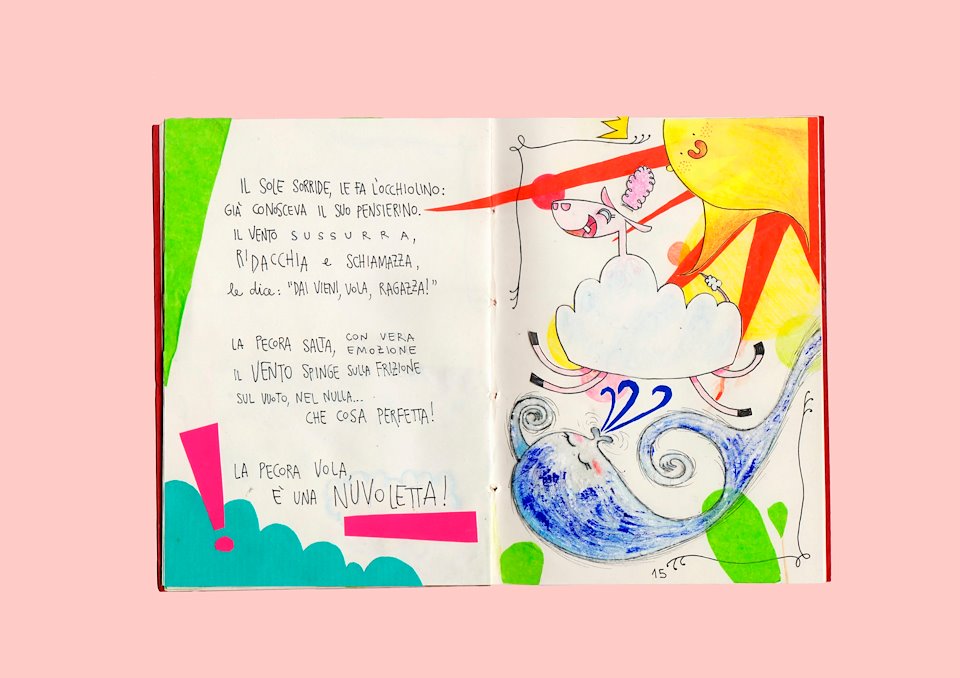 IL SOLE SORRIDE, LE FA L'OCCHIOLINO:
GIÀ CONOSCEVA IL SUO PENSIERINO.
IL VENTO SUSSURRA,
RIDACCHIA e SCHIAMAZZA,
le dice: "DAI VIENI, VOLA, RAGAZZA!"
LA PECORA SALTA, CON VERA
EMOZIONE
IL VENTO SPINGE SULLA FRIZIONE
SUL VUOTO, NEL NULLA...
CHE COSA PERFETTA!
LA PECORA VOLA,
È UNA NUVOLETTA!
15